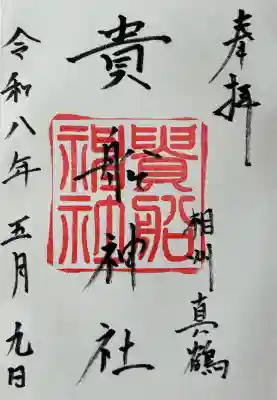 奉拝
相州 真鶴
貴船神社
貴船
神社
令和八年 五月 九日